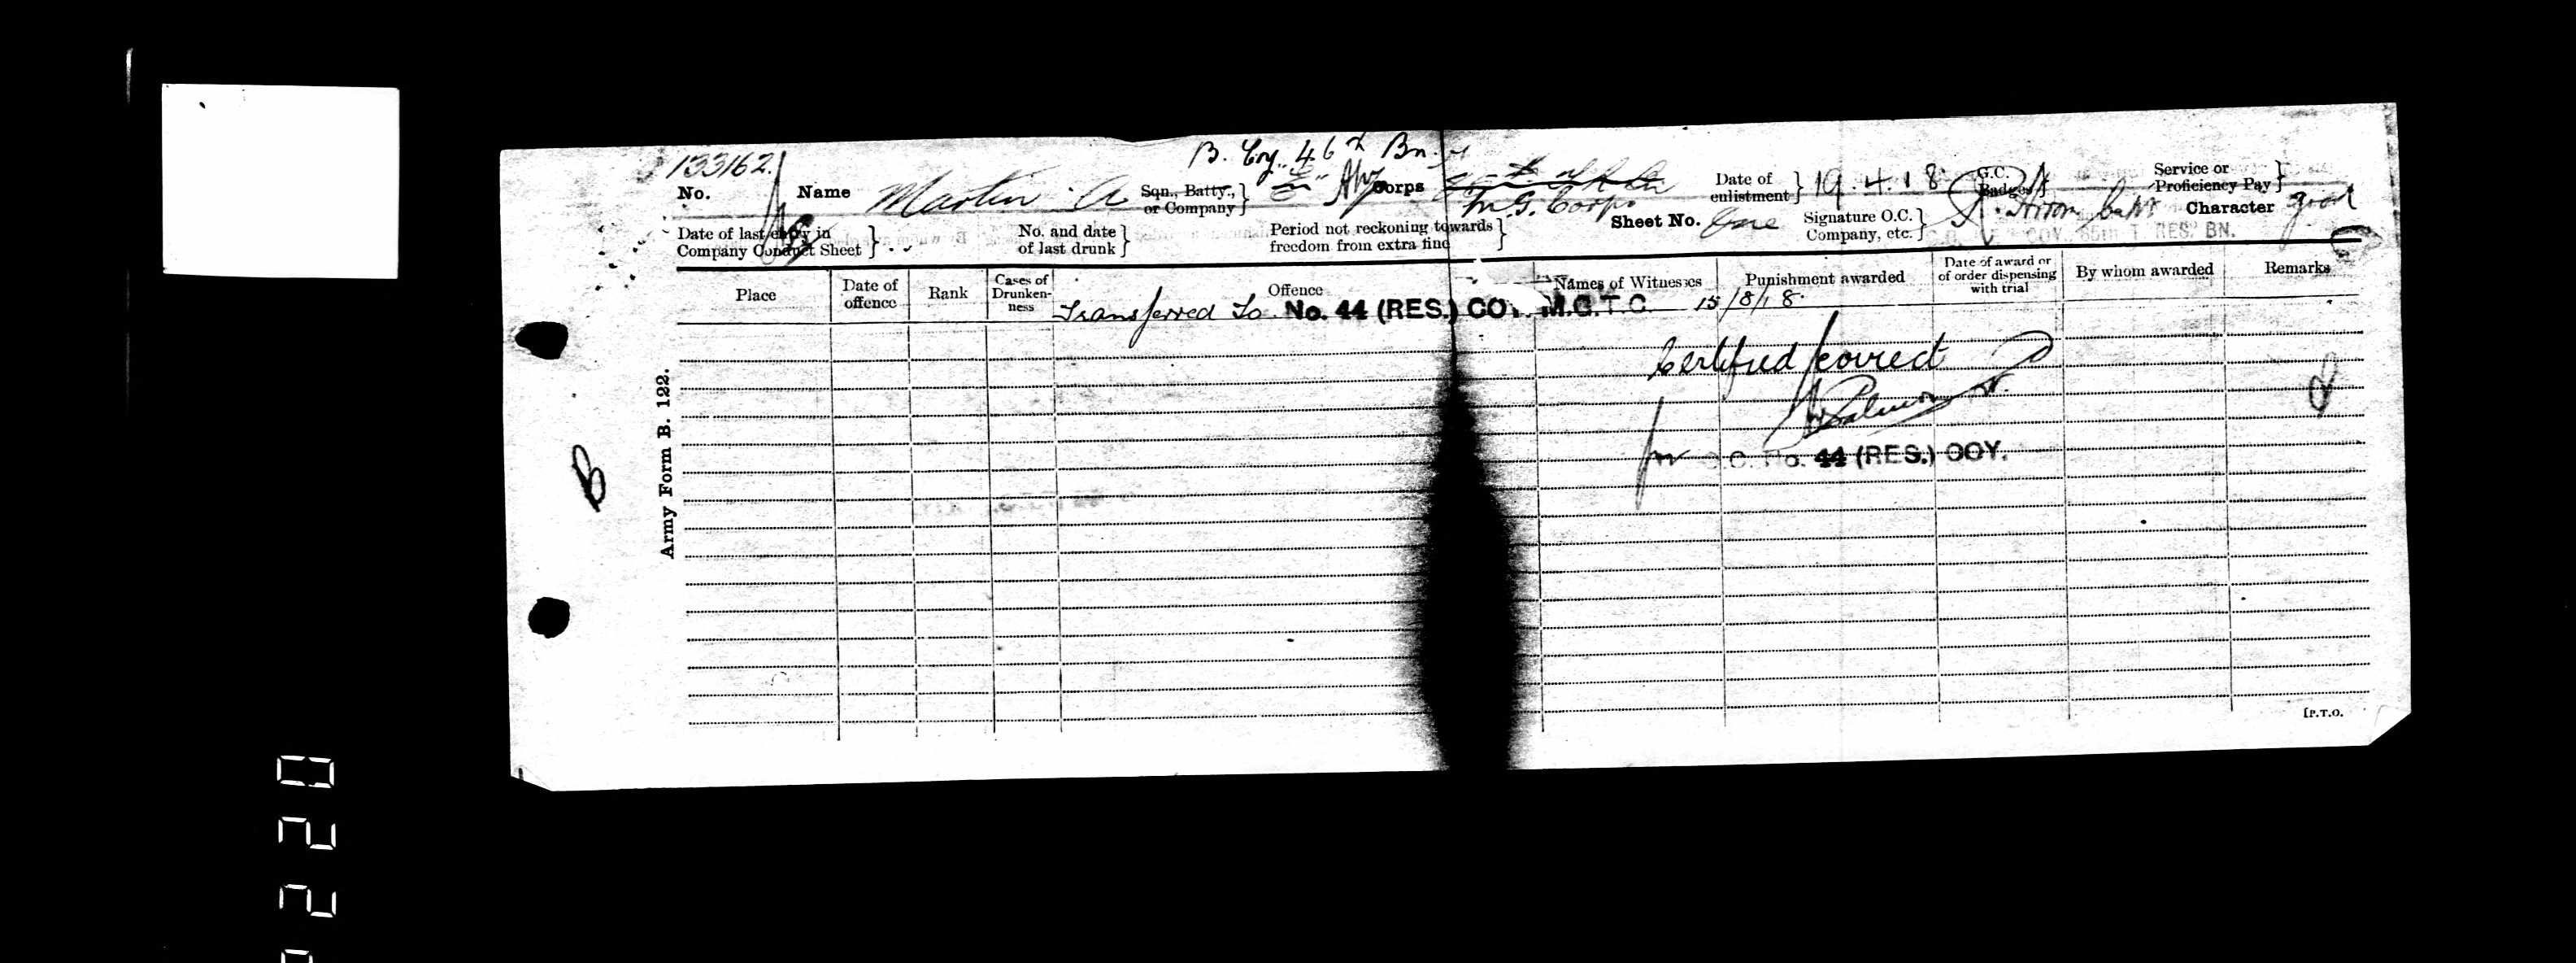 B. Coy. 46th Bn.
133162
No. Name Martin A Sqn., Batty., or Company } "E" Corps M.G. Corps Date of enlistment } 19.4.18 G.C. Badges Service or Proficiency Pay }
Date of last entry in Company Conduct Sheet } No. and date of last drunk } Period not reckoning towards freedom from extra fine } Sheet No. One Signature O.C. Company, etc. } Capt Character good
COY. 85th T. RES. BN.
Place Date of offence Rank Cases of Drunkenness Offence Names of Witnesses Punishment awarded Date of award or of order dispensing with trial By whom awarded Remarks
Transferred To No. 44 (RES.) COY. M.G.T.C. 15/8/18.
Certified correct
for O.C. No. 44 (RES.) COY.
Army Form B. 122.
B
[P.T.O.